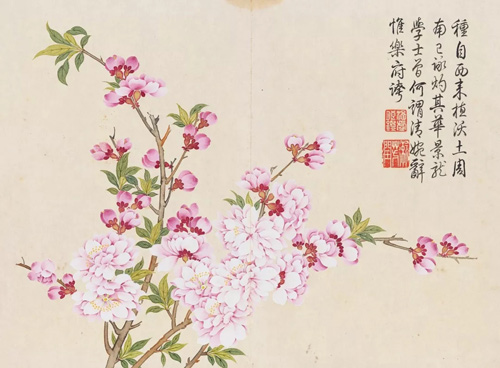 種自西来植沃土周
南已詠灼其華景龍
學士曽何謂清婉辭
惟樂府誇